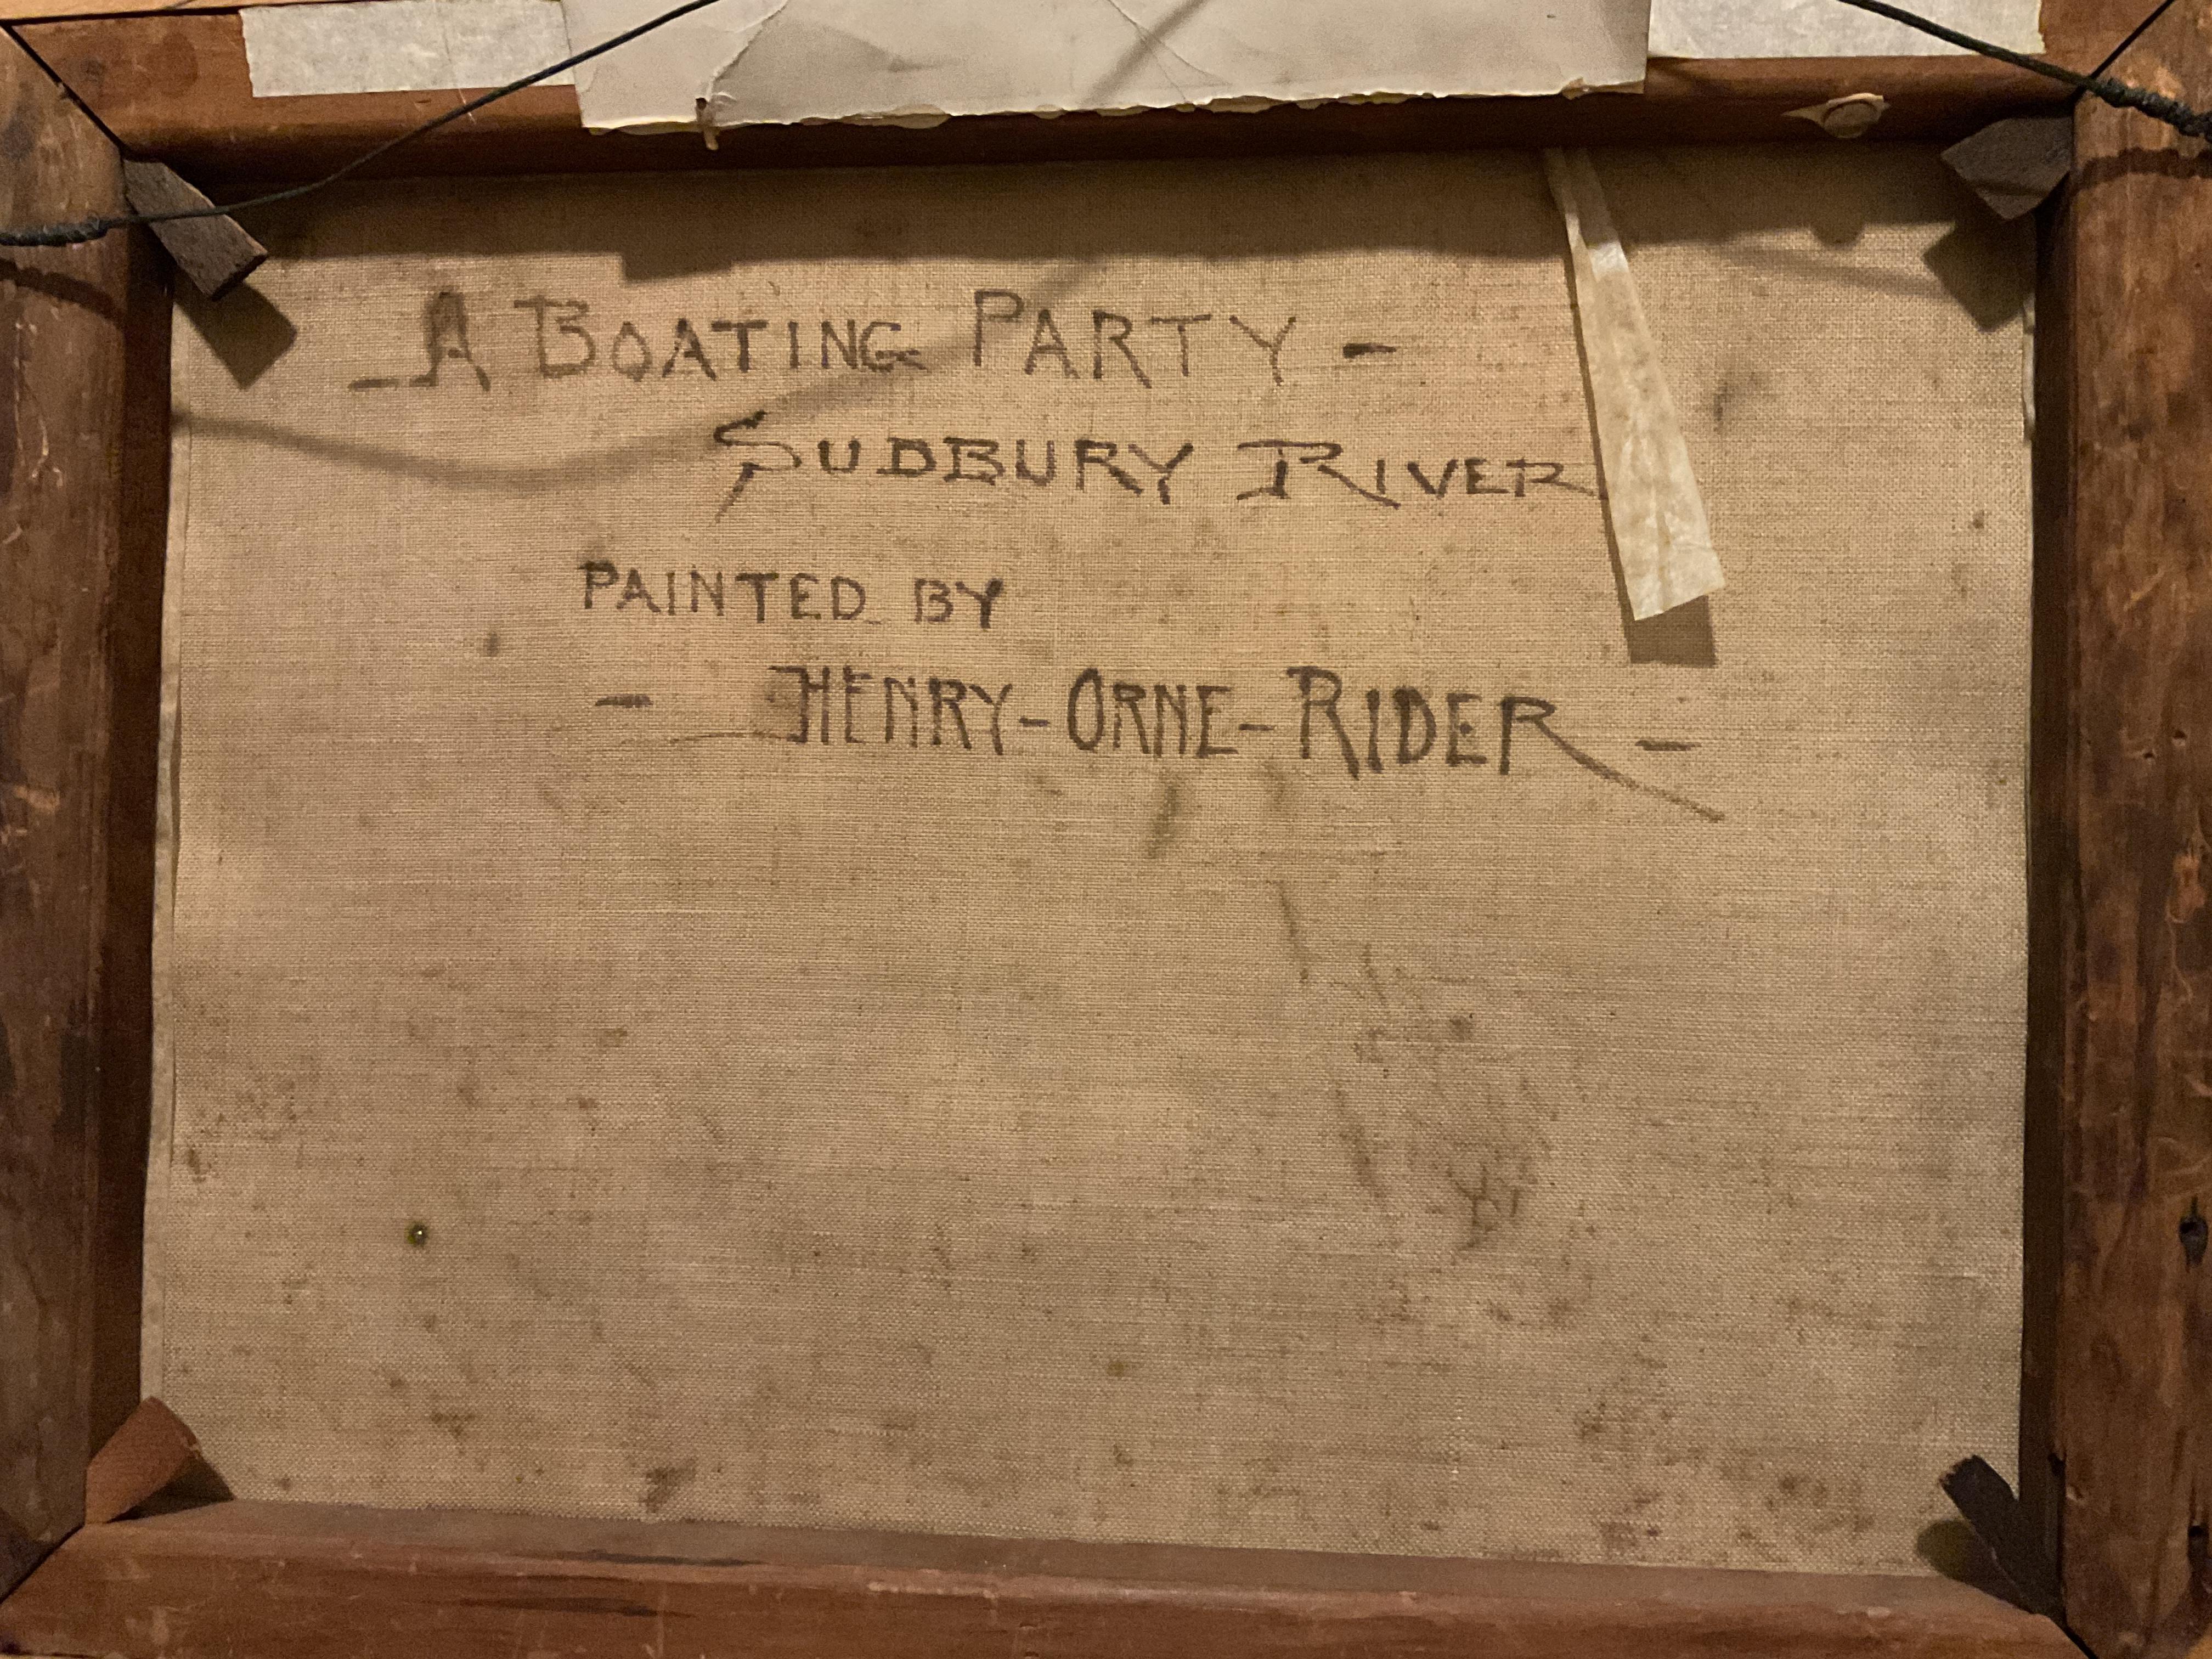 - A BOATING PARTY -
SUDBURY RIVER
PAINTED BY
- HENRY - ORNE - RIDER -